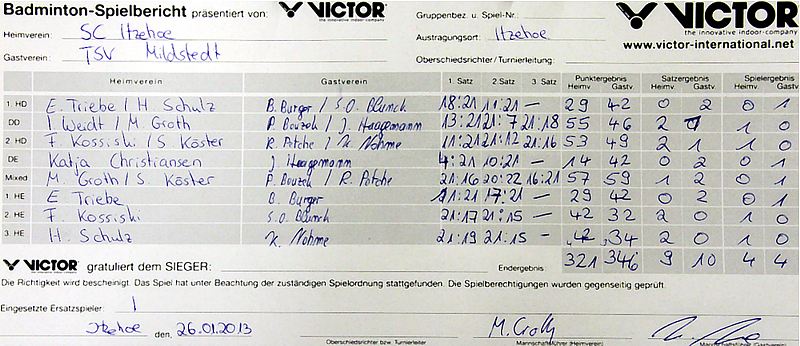 Badminton-Spielbericht präsentiert von: VICTOR the innovative indoor-company Gruppenbez. u. Spiel-Nr. VICTOR the innovative indoor-company
Heimverein: SC Itzehoe Austragungsort: Itzehoe www.victor-international.net
Gastverein: TSV Mildstedt Oberschiedsrichter/Turnierleitung:
Heimverein Gastverein 1. Satz 2. Satz 3. Satz Punktergebnis Satzergebnis Spielergebnis
Heimv. Gastv. Heimv. Gastv. Heimv. Gastv.
1. HD E. Triebe / H. Schulz B. Burger / S.O. Blunck 18:21 11:21 — 29 42 0 2 0 1
DD I. Weidt / M. Groth P. Bouzek / J. Haagemann 13:21 21:7 21:18 55 46 2 1 0
2. HD F. Kossiski / S. Köster R. Potche / K. Nohme 11:21 21:12 21:16 53 49 2 1 1 0
DE Katja Christiansen J. Haagemann 4:21 10:21 — 14 42 0 2 0 1
Mixed M. Groth / S. Köster P. Bouzek / R. Potche 21:16 20:22 16:21 57 59 1 2 0 1
1. HE E. Triebe B. Burger 17:21 — 29 42 0 2 0 1
2. HE F. Kossiski S.O. Blunck 21:17 21:15 — 42 32 2 0 1 0
3. HE H. Schulz K. Nohme 21:19 21:15 — 42 34 2 0 1 0
VICTOR gratuliert dem SIEGER: Endergebnis: 321 346 9 10 4 4
Die Richtigkeit wird bescheinigt. Das Spiel hat unter Beachtung der zuständigen Spielordnung stattgefunden. Die Spielberechtigungen wurden gegenseitig geprüft.
Eingesetzte Ersatzspieler:
Itzehoe den, 26.01.2013 M. Groth
Oberschiedsrichter bzw. Turnierleiter Mannschaftsführer (Heimverein) Mannschaftsführer (Gastverein)